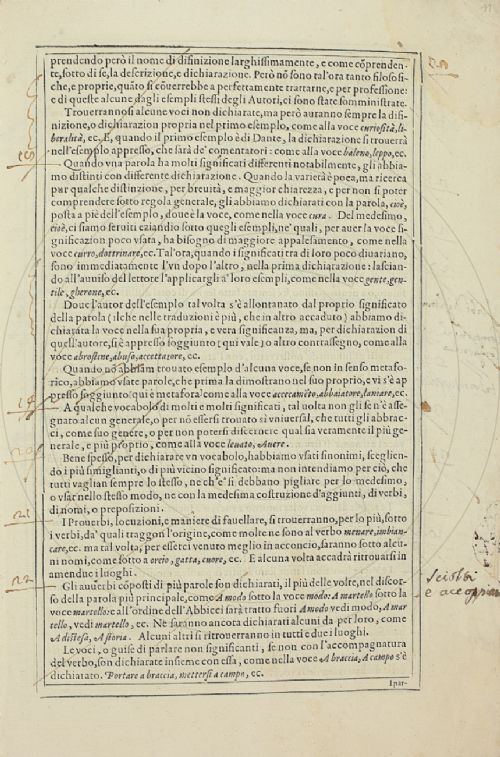 prendendo però il nome di difinizione larghissimamente, e come cõprenden-
te, sotto di sé, la descrizione, e dichiarazione. Però nõ sono tal'ora tanto filosofi-
che, e proprie, quãto si cõuerrebbe a perfettamente trattarne, e per professione:
e di queste alcune dagli esempli stessi degli Autori, ci sono state somministrate.
Trouerrannosi alcune voci non dichiarate, ma però auranno sempre la difi-
nizione, o dichiarazion propria nel primo esemplo, come alla voce curiosità, li-
beralità, ec. E, quando il primo esemplo è di Dante, la dichiarazione si trouerrà
nell'esemplo appresso, che sarà de' comentatori: come alla voce balena, ceppo, ec.
Quando vna parola ha molti significati differenti notabilmente, gli abbia-
mo distinti con differente dichiarazione. Quando la varietà è poca, ma ricerca
pur qualche distinzione, per breuità, e maggior chiarezza, e per non si poter
comprendere sotto regola generale, gli abbiamo dichiarati con la parola, cioè,
posta a piè dell'esemplo, doue è la voce, come nella voce cura. Del medesimo,
cioè, ci siamo seruiti eziandio sotto quegli esempli, ne' quali, per auer la voce si-
gnificazion poco vsata, ha bisogno di maggiore appalesamento, come nella
voce curro, dottrinare, ec. Tal'ora, quando i significati tra di loro poco diuariano,
sono immediatamente l'vn dopo l'altro, nella prima dichiarazione: lascian-
do all'auuiso del lettore l'applicargli a' loro esempli, come nella voce gente, gen-
tile, gherone, ec.
Doue l'autor dell'esemplo tal volta s'è allontanato dal proprio significato
della parola (il che nelle traduzioni è più, che in altro accaduto) abbiamo di-
chiarata la voce nella sua propria, e vera significanza, ma, per dichiarazion di
quell'autore, si è appresso soggiunto (qui vale) o altro contrassegno, come alla
voce abrostine, abuso, accettatore, ec.
Quando nõ abbiam trouato esemplo d'alcuna voce, se non in senso metafo-
rico, abbiamo vsate parole, che prima la dimostrano nel suo proprio, e vi s'è ap
presso soggiunto: qui è metafora: come alla voce accecamẽto, abbaiatore, lanciare, ec.
A qualche vocabolo di molti e molti significati, tal volta non gli se n'è asse-
gnato alcun generale, o per nõ essersi trouato sì vniuersal, che tutti gli abbrac-
ci, come suo genere, o per non potersi discernere qual sia veramente il più ge-
nerale, e più proprio, come alla voce leuato, Auere.
Bene spesso, per dichiarare vn vocabolo, habbiamo vsati sinonimi, sceglien-
do i più simiglianti, o di più vicino significato: ma non intendiamo per ciò, che
tutti vaglian sempre lo stesso, ne ch'e' si debbano pigliare per lo medesimo,
o vsar nello stesso modo, ne con la medesima costruzione d'aggiunti, di verbi,
di nomi, o preposizioni.
I Prouerbi, locuzioni, e maniere di fauellare, si trouerranno, per lo più, sotto
i verbi, da' quali traggon l'origine, come molte ne sono al verbo menare, imbian-
care, ec. ma tal volta, per esserci venuto meglio in acconcio, saranno sotto alcu-
ni nomi, come sotto a orcio, gatta, cuore, ec. E alcuna volta accadrà ritrouarsi in
amendue i luoghi.
Gli auuerbi cõposti di più parole son dichiarati, il più delle volte, nel discor-
so della parola più principale, come A modo sotto la voce modo: A martello sotto la
voce martello: e all'ordine dell'Abbicci sarà tratto fuori A modo vedi modo, A mar
tello, vedi martello, ec. Ne saranno ancora dichiarati alcuni da per loro, come
A distesa, A storia. Alcuni altri si ritroueranno in tutti e due i luoghi.
Le voci, o guise di parlare non significanti, se non l'accompagnatura
del verbo, son dichiarate insieme con essa, come nella voce A braccia, A campo s'è
dichiarato. Portare a braccia, mettersi a campo, ec.
I par-
18
21
22
Sciolti
e accoppia